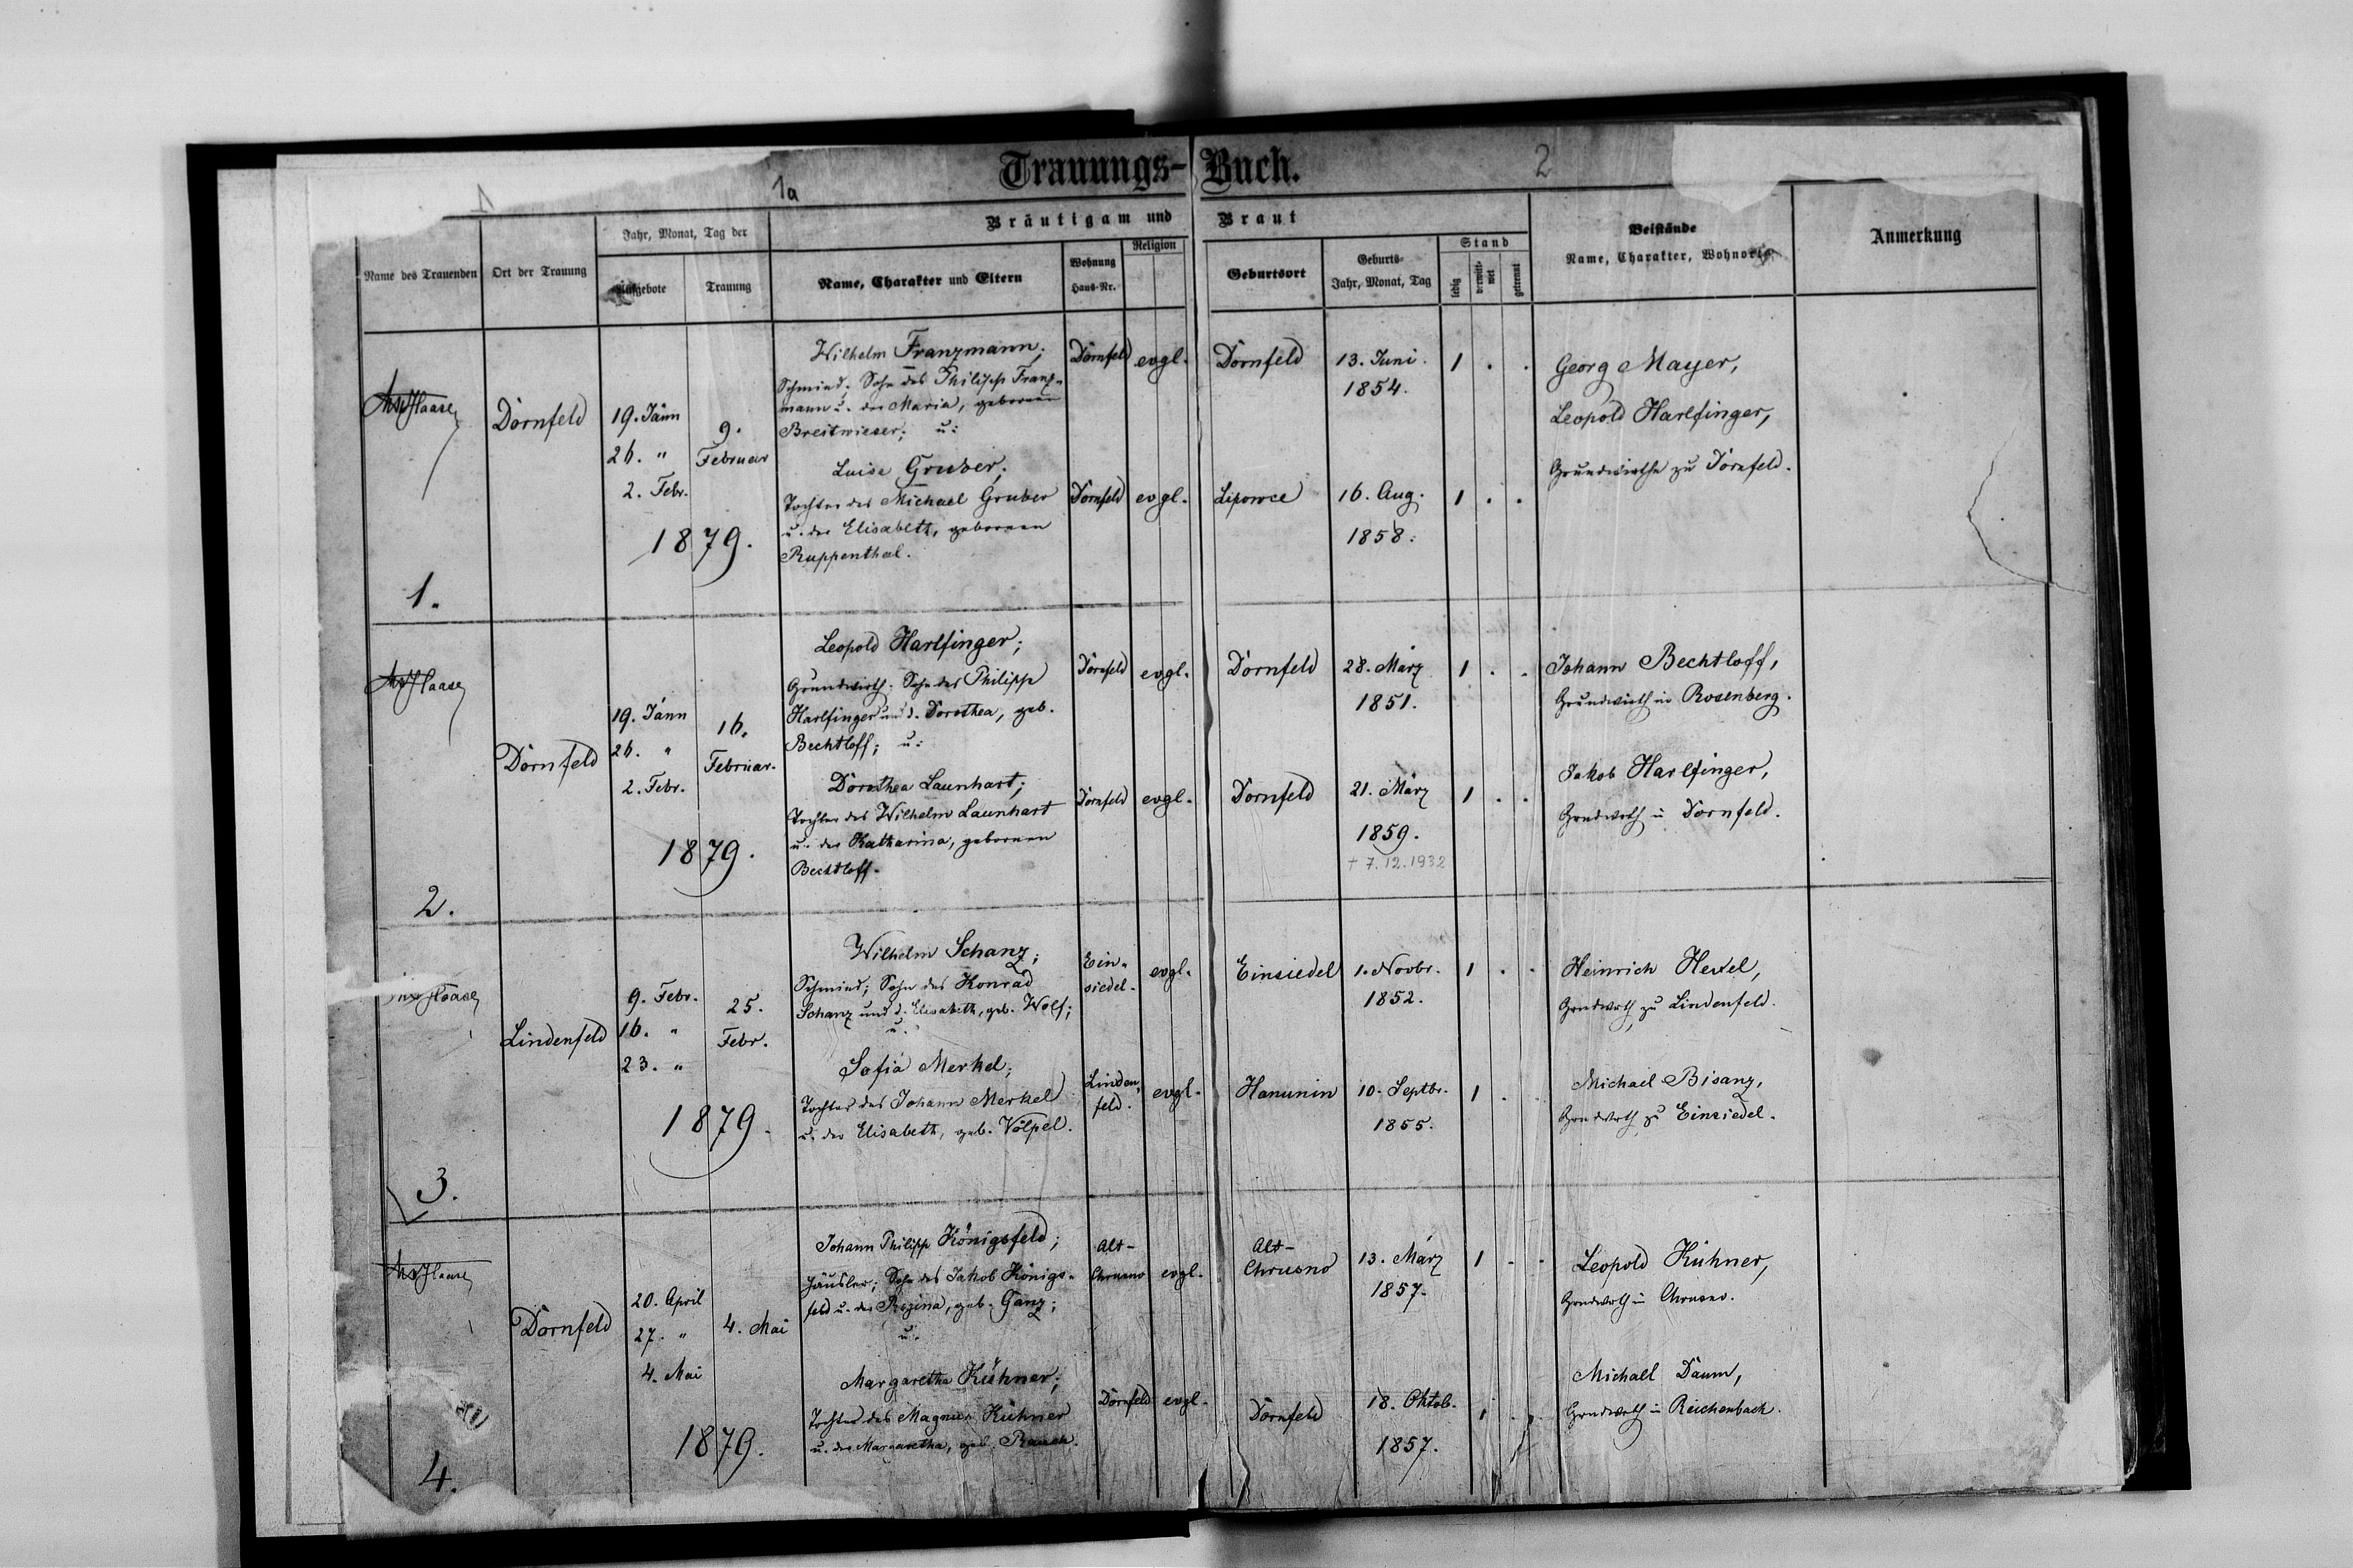 Trauungs-Buch.
1
1a
2
Name des Trauenden
Ort der Trauung
Jahr, Monat, Tag der
Aufgebote
Trauung
Bräutigam und Braut
Name, Charakter und Eltern
Wohnung
Haus-Nr.
Religion
Geburtsort
Geburts-
Jahr, Monat, Tag
Stand
ledig
verwitt-
wet
getrennt
Beistände
Name, Charakter, Wohnorte
Anmerkung
Haase
1.
Dornfeld
19. Jänn
26. "
2. Febr.
9.
Februar
1879.
Wilhelm Franzmann;
Schmied; Sohn des Philipp Franz-
mann u. der Maria, gebornen
Breitwieser; u:
Dornfeld evgl.
Dornfeld
13. Juni
1854.
1 . .
Luise Gruber;
Tochter des Michael Gruber
u. der Elisabeth, gebornen
Ruppenthal.
Dornfeld evgl.
Lipowce
16. Aug.
1858.
1 . .
Georg Mayer,
Leopold Harlfinger,
Grundwirthe zu Dornfeld.
Haase
2.
Dornfeld
19. Jänn
26. "
2. Febr.
16.
Februar.
1879.
Leopold Harlfinger;
Grundwirth; Sohn des Philipp
Harlfinger und d. Dorothea, geb.
Bechtloff; u:
Dornfeld evgl.
Dornfeld
28. März
1851.
1 . .
Dorothea Launhart;
Tochter des Wilhelm Launhart
u. der Katharina, gebornen
Bechtloff.
Dornfeld evgl.
Dornfeld
21. März
1859.
+ 7.12.1932
1 . .
Johann Bechtloff,
Grundwirth in Rosenberg.
Jakob Harlfinger,
Grndwrth in Dornfeld.
Haase
3.
Lindenfeld
9. Febr.
16. "
23. "
25.
Febr.
1879.
Wilhelm Schanz;
Schmied; Sohn des Konrad
Schanz und d. Elisabeth, geb. Wolf;
u:
Ein-
siedel.
evgl.
Einsiedel
1. Novbr.
1852.
1 . .
Sofia Merkel;
Tochter des Johann Merkel
u. der Elisabeth, geb. Völpel.
Linden-
feld.
evgl.
Hanunin
10. Septbr.
1855.
1 . .
Heinrich Hexel,
Grndwrth zu Lindenfeld.
Michael Bisanz,
Grndwrth zu Einsiedel.
Haase
4.
Dornfeld
20. April
27. "
4. Mai
4. Mai
1879.
Johann Philipp Königsfeld;
Häusler; Sohn des Jakob Königs-
feld u. der Regina, geb. Ganz;
u:
Alt-
Chrusno
evgl.
Alt-
Chrusno
13. März
1857.
1 . .
Margaretha Kühner;
Tochter des Magnus Kühner
u. der Margaretha, geb. Rauch.
Dornfeld evgl.
Dornfeld
18. Oktob.
1857.
1 . .
Leopold Kühner,
Grndwrth in Chrusno.
Michael Daum,
Grndwrth in Reichenbach.